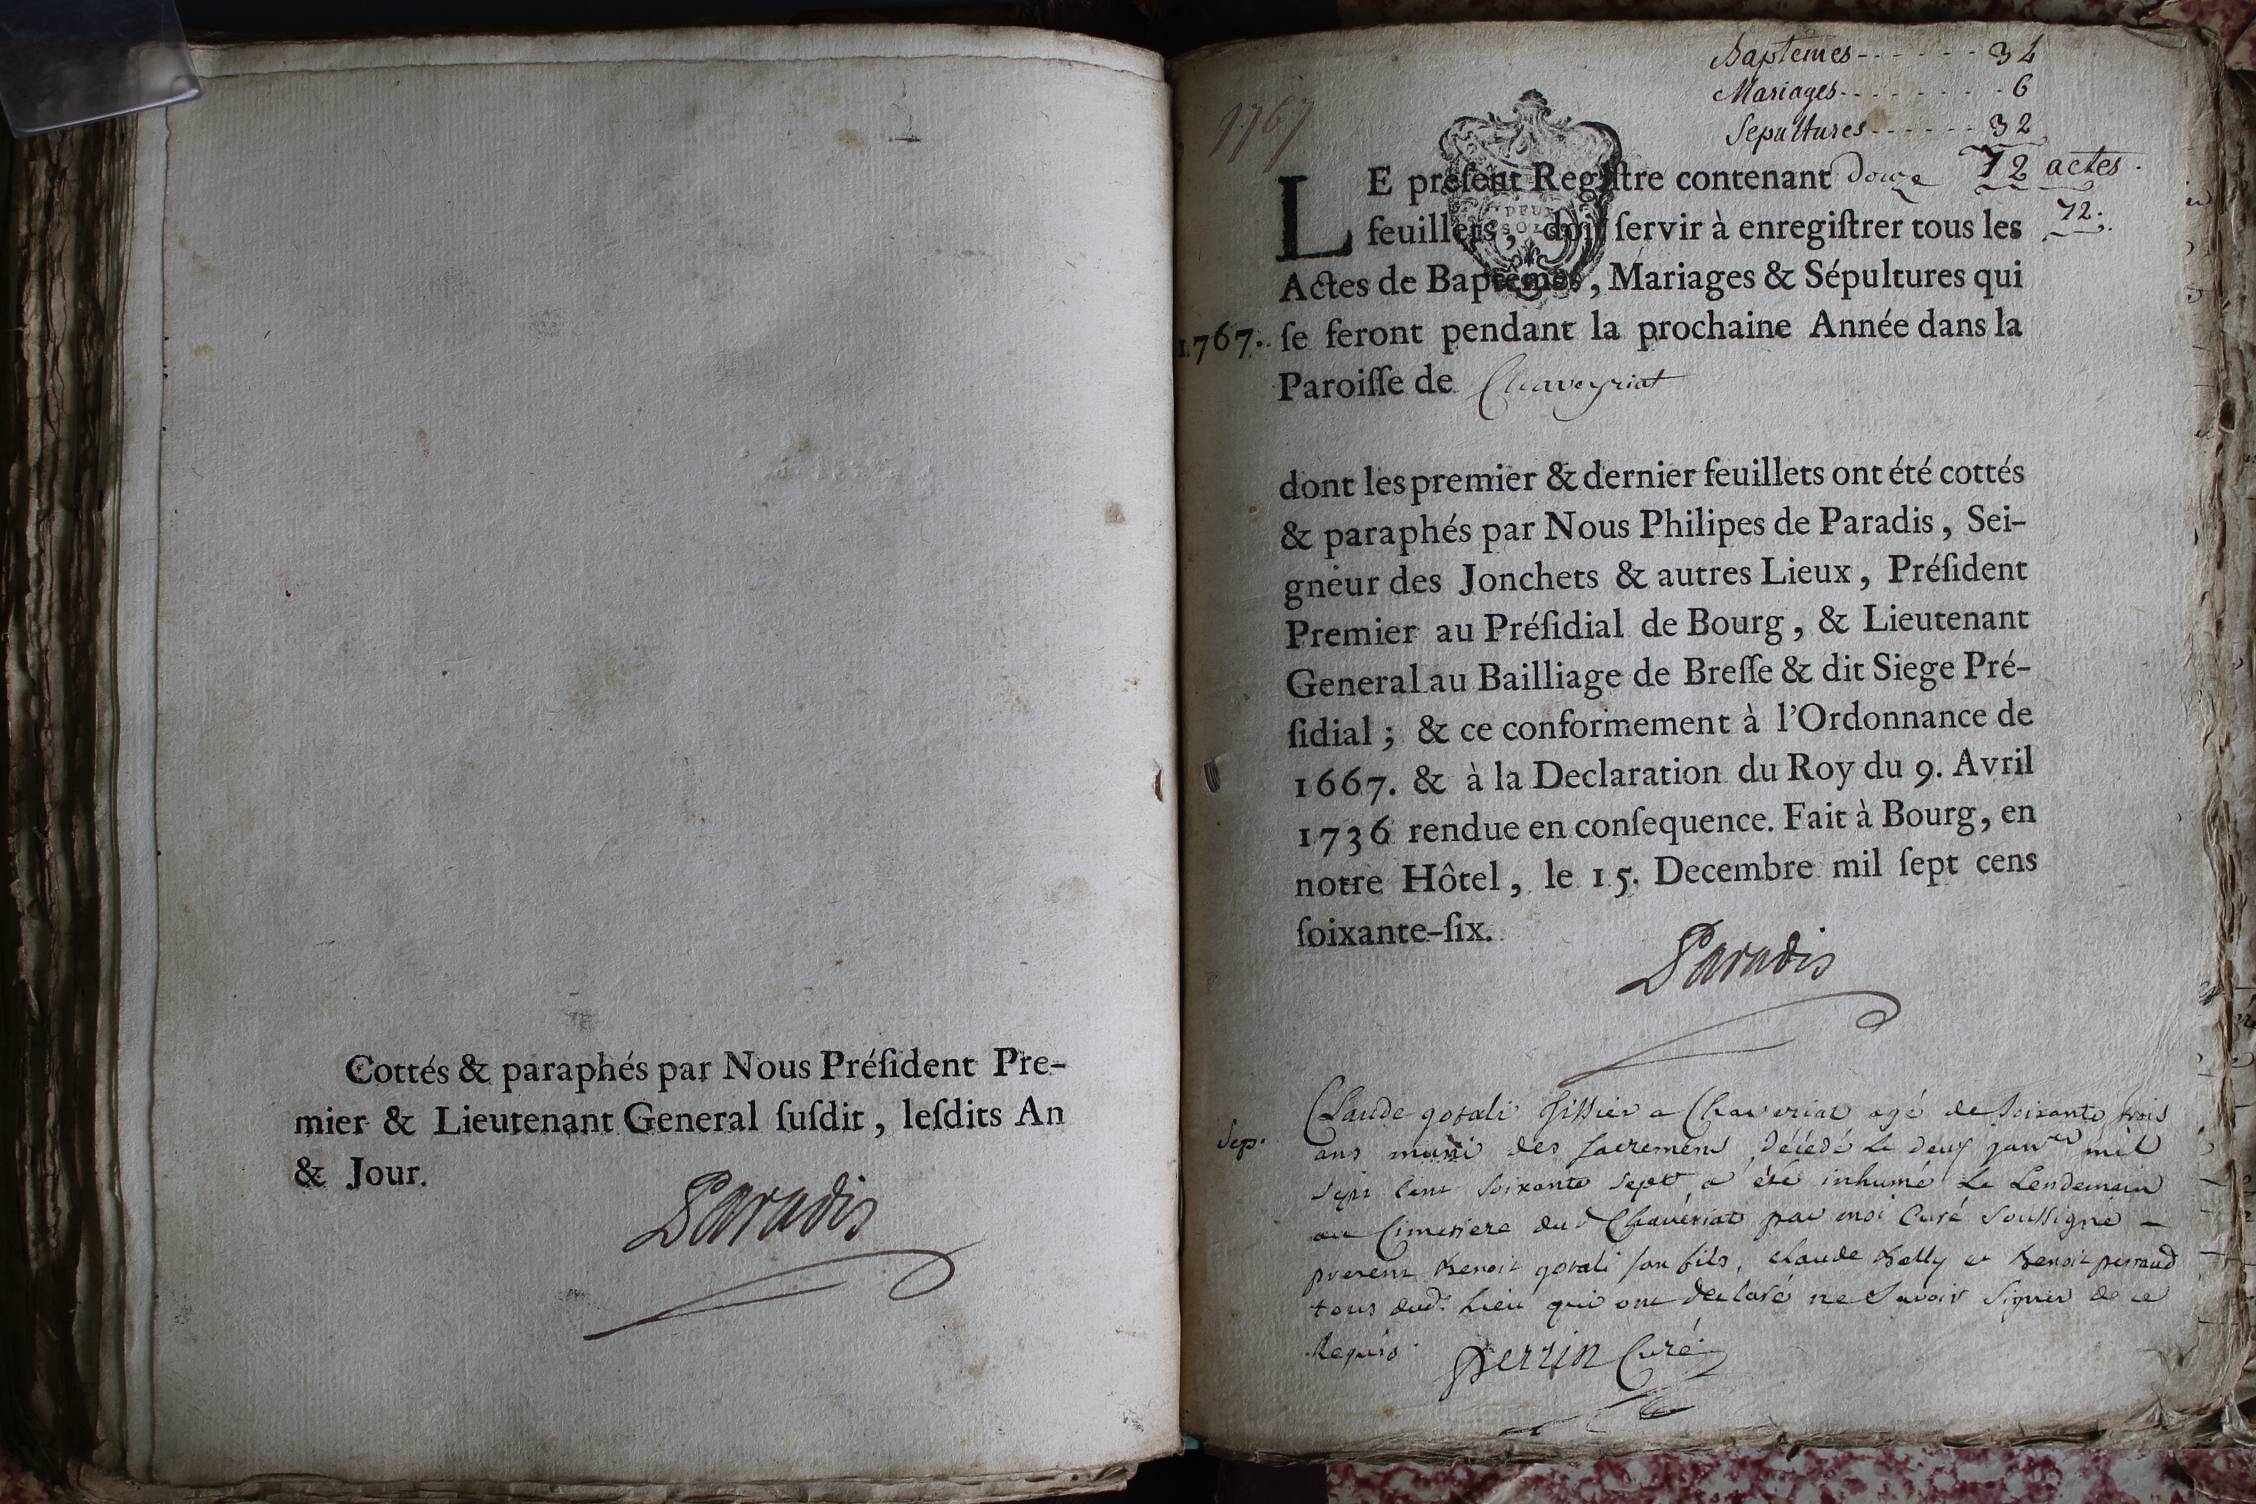 Cottés & paraphés par Nous Préſident Pre-
mier & Lieutenant General ſuſdit, leſdits An
& Jour.
Paradis
1767
Baptemes - - - - - - 34
Mariages - - - - - - - - 6
Sepultures - - - - - - 32
72 actes.
72.
LE preſent Regiſtre contenant douze
feuillets, doit ſervir à enregiſtrer tous les
Actes de Baptêmes, Mariages & Sépultures qui
1767. ſe feront pendant la prochaine Année dans la
Paroiſſe de Chaveyriat
DEUX
SOLS
dont les premier & dernier feuillets ont été cottés
& paraphés par Nous Philipes de Paradis, Sei-
gneur des Jonchets & autres Lieux, Préſident
Premier au Préſidial de Bourg, & Lieutenant
General au Bailliage de Breſſe & dit Siege Pré-
ſidial; & ce conformement à l'Ordonnance de
1667. & à la Declaration du Roy du 9. Avril
1736 rendue en conſequence. Fait à Bourg, en
notre Hôtel, le 15. Decembre mil ſept cens
ſoixante-ſix.
Paradis
Sep.
Claude gorali tissier a Chaveriat agé de soixante trois
ans muni des sacremens décédé le deux janver mil
sept cent soixante sept a été inhumé le lendemain
au Cimetiere dud Chaveriat par moi Curé soussigné -
present Benoit gorali son fils, claude Belly et Benoit perraud
tous dud. lieu qui ont declaré ne savoir signer de ce
Requis
perrin Curé